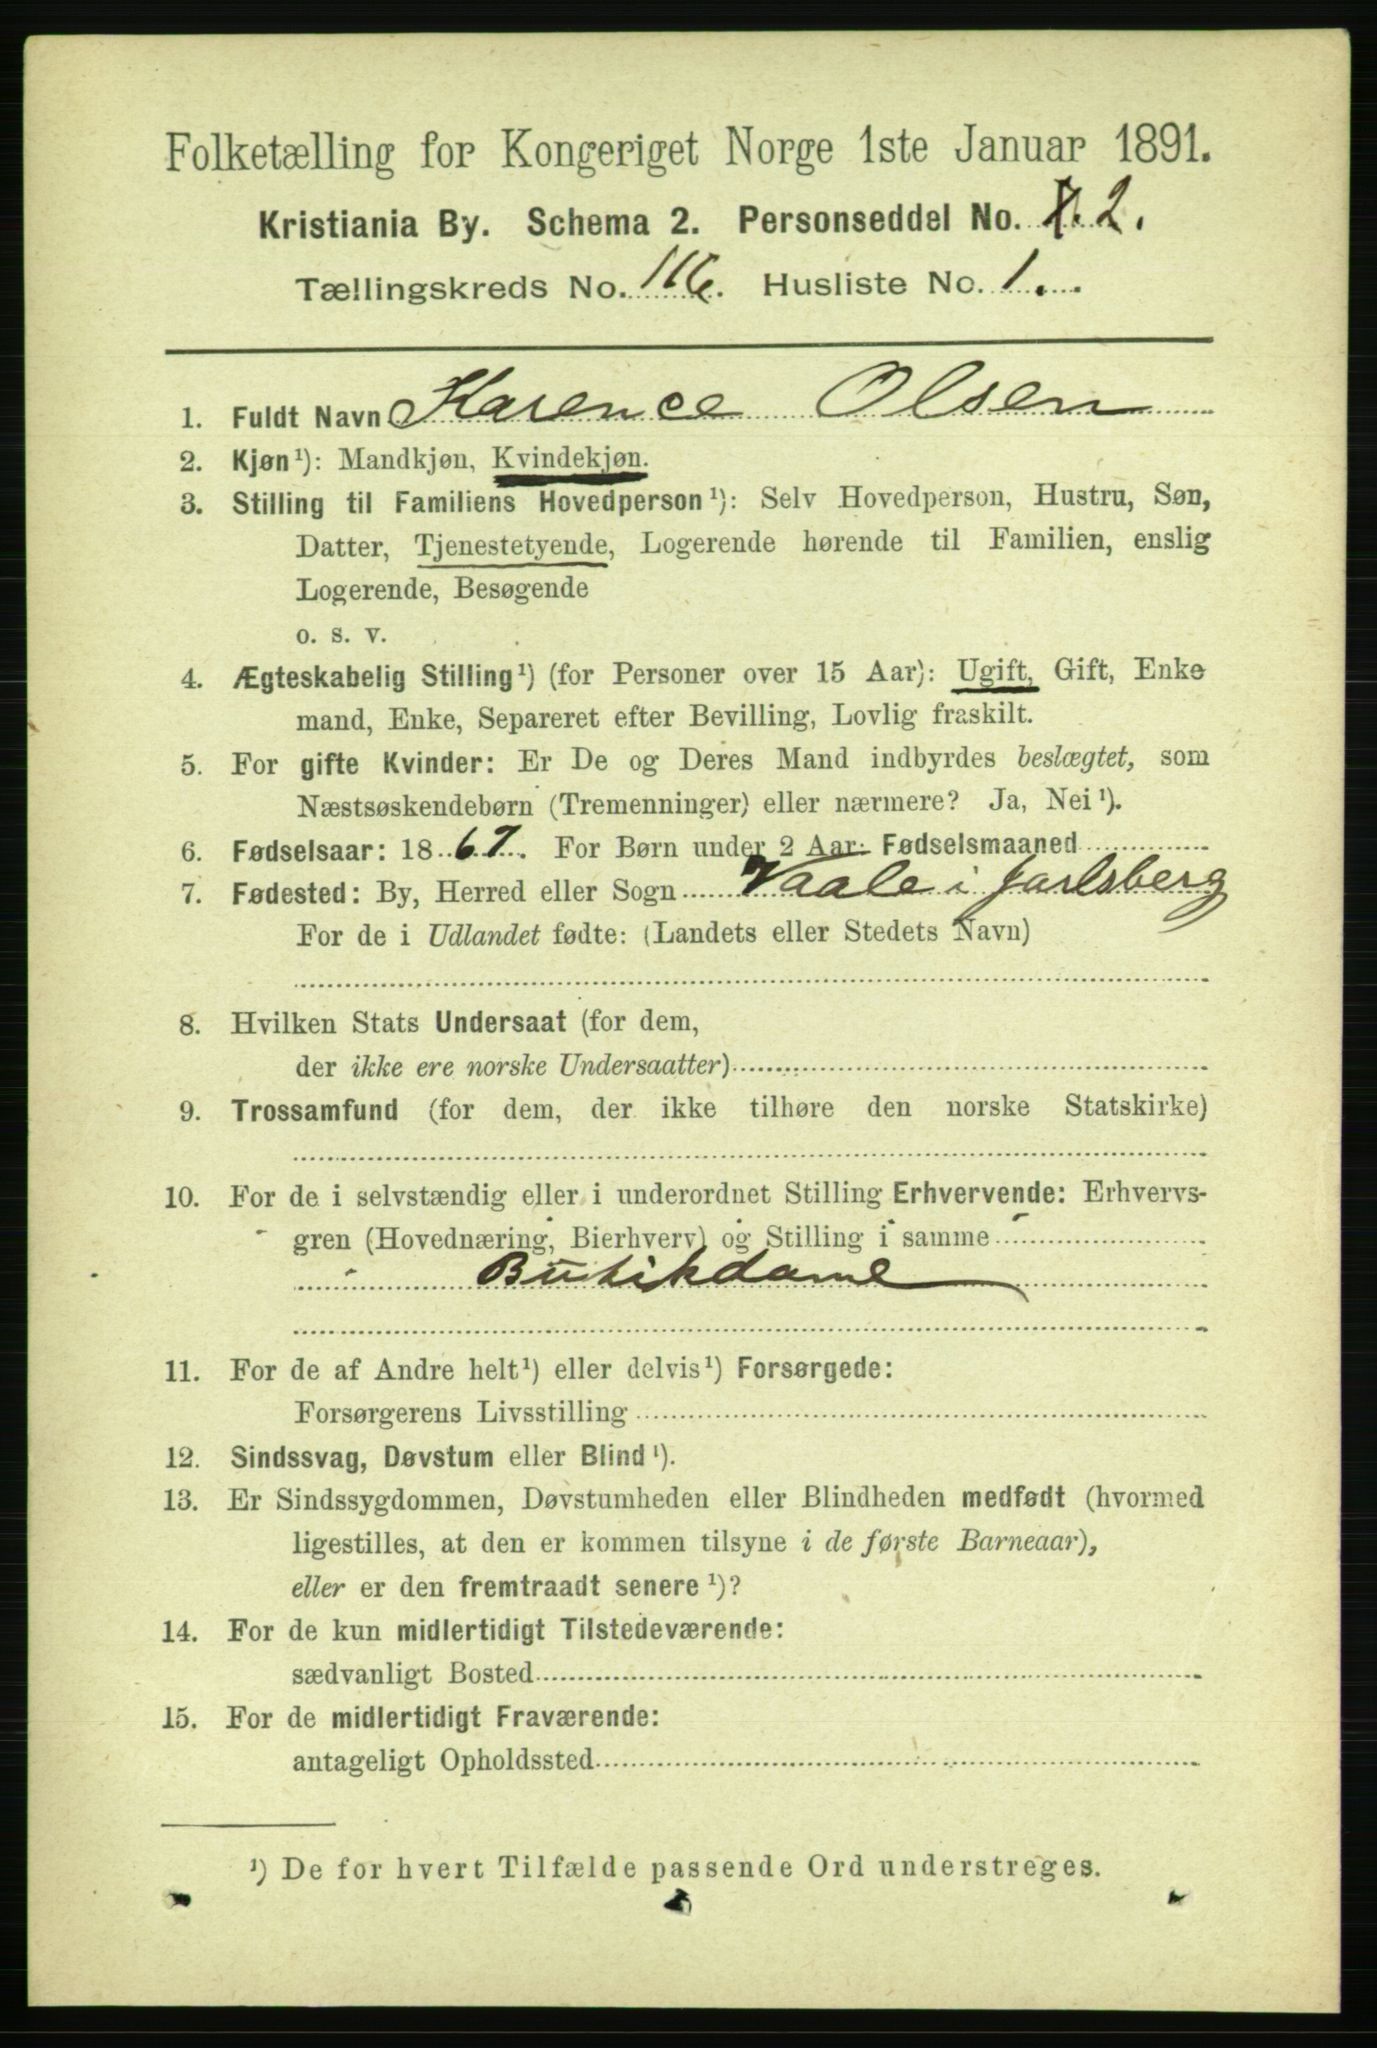 Folketælling for Kongeriget Norge 1ste Januar 1891.
Kristiania By. Schema 2. Personseddel No. 2.
Tællingskreds No. 116. Husliste No. 1.
1. Fuldt Navn Karence Olsen
2. Kjøn¹): Mandkjøn, Kvindekjøn.
3. Stilling til Familiens Hovedperson¹): Selv Hovedperson, Hustru, Søn,
Datter, Tjenestetyende, Logerende hørende til Familien, enslig
Logerende, Besøgende
o. s. v.
4. Ægteskabelig Stilling¹) (for Personer over 15 Aar): Ugift, Gift, Enke
mand, Enke, Separeret efter Bevilling, Lovlig fraskilt.
5. For gifte Kvinder: Er De og Deres Mand indbyrdes beslægtet, som
Næstsøskendebørn (Tremenninger) eller nærmere? Ja, Nei¹).
6. Fødselsaar: 1867. For Børn under 2 Aar: Fødselsmaaned
7. Fødested: By, Herred eller Sogn Vaale i Jarlsberg
For de i Udlandet fødte: (Landets eller Stedets Navn)
8. Hvilken Stats Undersaat (for dem,
der ikke ere norske Undersaatter)
9. Trossamfund (for dem, der ikke tilhøre den norske Statskirke)
10. For de i selvstændig eller i underordnet Stilling Erhvervende: Erhvervs-
gren (Hovednæring, Bierhverv) og Stilling i samme
Butikdame
11. For de af Andre helt¹) eller delvis¹) Forsørgede:
Forsørgerens Livsstilling
12. Sindssvag, Døvstum eller Blind¹).
13. Er Sindssygdommen, Døvstumheden eller Blindheden medfødt (hvormed
ligestilles, at den er kommen tilsyne i de første Barneaar),
eller er den fremtraadt senere¹)?
14. For de kun midlertidigt Tilstedeværende:
sædvanligt Bosted
15. For de midlertidigt Fraværende:
antageligt Opholdssted
¹) De for hvert Tilfælde passende Ord understreges.